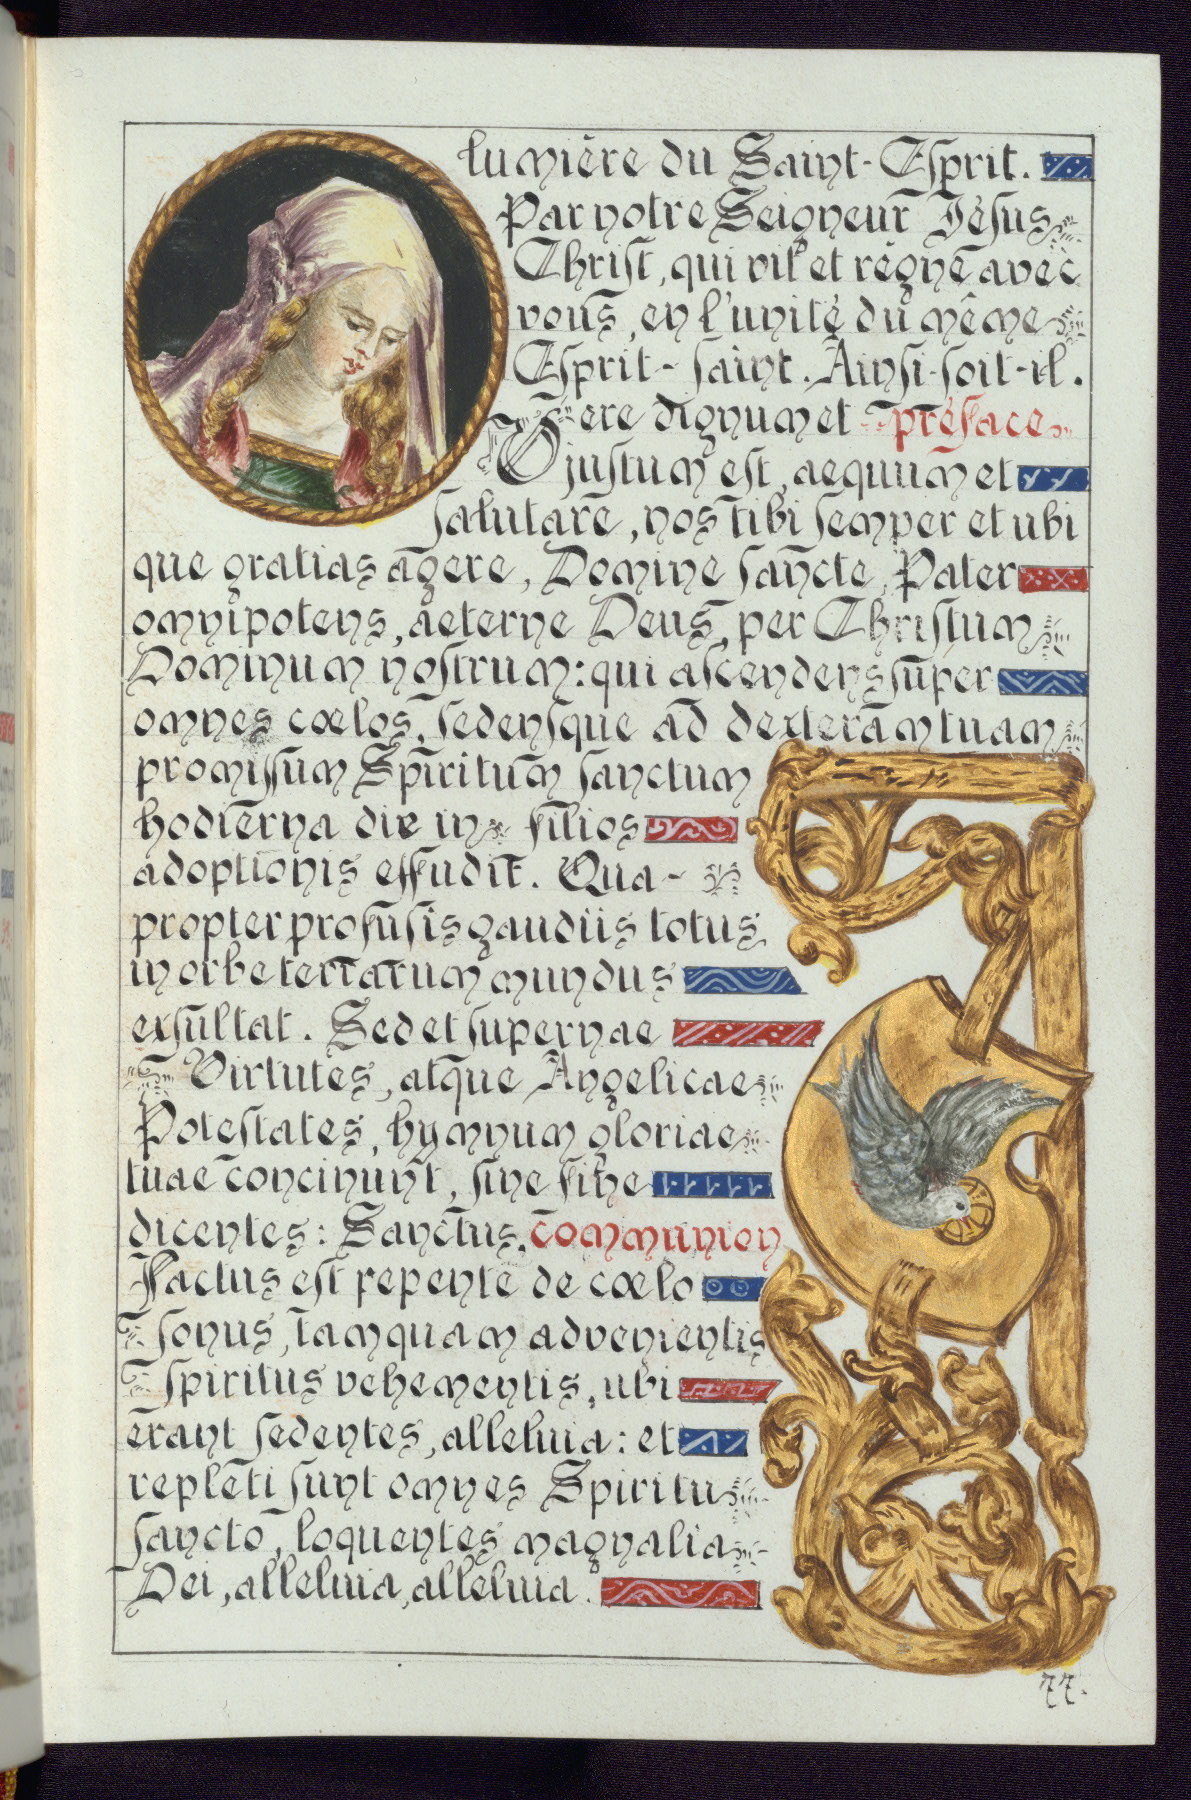 lumière du Saint-Esprit.
Par notre Seigneur Jésus
Christ, qui vit et règne avec
vous, en l'unité du même
Esprit-saint. Ainsi-soit-il.
Vere dignum et préface
justum est, aequum et
salutare, nos tibi semper et ubi
que gratias agere, Domine sancte, Pater
omnipotens, aeterne Deus, per Christum
Dominum nostrum: qui ascendens super
omnes cœlos, sedensque ad dexteram tuam
promissum Spiritum sanctum
hodierna die in filios
adoptionis effudit. Qua-
propter profusis gaudiis totus
in orbe terrarum mundus
exsultat. Sed et supernae
Virtutes, atque Angelicae
Potestates, hymnum gloriae
tuae concinunt, sine fine
dicentes: Sanctus. communion
Factus est repente de cœlo
sonus, tamquam advenientis
spiritus vehementis, ubi
erant sedentes, alleluia: et
repleti sunt omnes Spiritu
sancto, loquentes magnalia
Dei, alleluia, alleluia.
77.